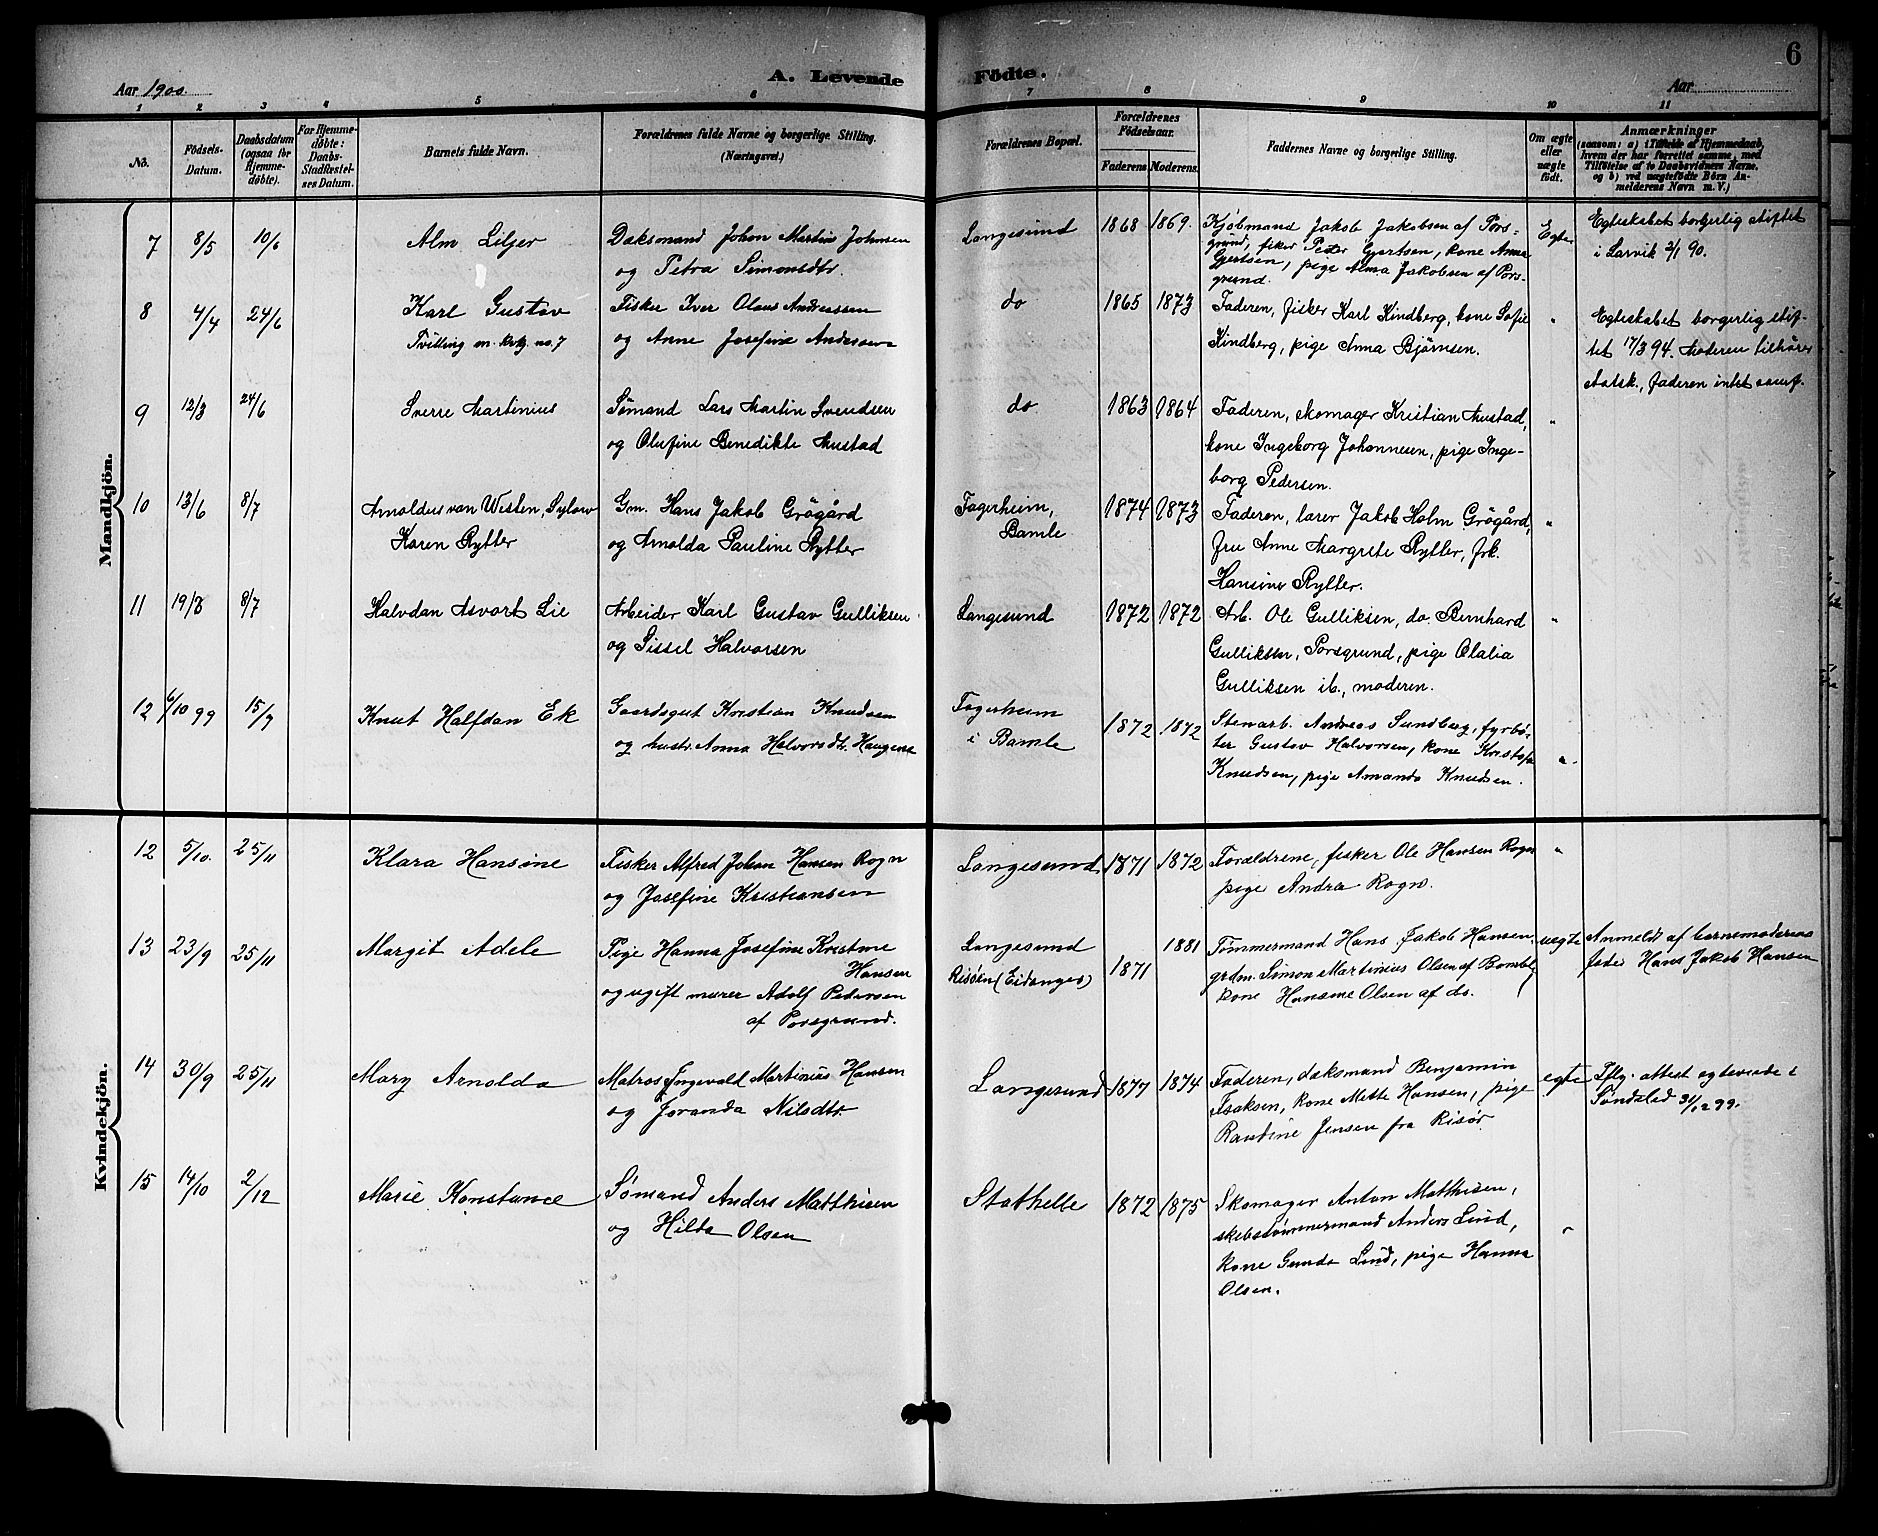 Aar 1900.
A. Levende Födte.
Aar
6
1 2 3 4 5 6 7 8 9 10 11
No.
Födsels-
Datum.
Daabsdatum
(ogsaa for
Hjemme-
döbte).
For Hjemme-
döbte:
Daabs-
Stadfæstel-
ses Datum.
Barnets fulde Navn.
Forældrenes fulde Navne og borgerlige Stilling.
(Næringsvei.)
Forældrenes Bopæl.
Forældrenes
Födselsaar.
Faderens Moderens.
Faddernes Navne og borgerlige Stilling.
Om ægte
eller
uægte
födt.
Anmærkninger
(saasom: a) i Tilfælde af Hjemmedaab,
hvem der har forrettet samme, med
Tilföielse af to Daabsvidners Navne,
og b) ved uægtefödte Börn An-
melderens Navn m. V.)
Mandkjön.
7 8/5 10/6 Alm Liljer
Dæksmand Johan Martin Johnsen
og Petra Simonsdtr.
Langesund 1868 1869.
Kjöbmand Jakob Jakobsen af Pors-
grund, fisker Peder Gjertsen, kone Anna
Gjertsen, pige Alma Jakobsen af Pors-
grund.
Egte
Egteskabet borgerlig stiftet
i Larvik 2/1 90.
8 4/4 24/6 Karl Gustav
Tvilling m. kvkj. no. 7
Fisker Iver Olaus Andreassen
og Anne Josefine Andersen
do 1865 1873
Faderen, fisker Karl Kindberg, kone Sofie
Kindberg, pige Anna Bjørnsen.
"
Egteskabet borgerlig stif-
tet 17/3 94. Moderen tilhører
statsk., faderen intet samf.
9 12/3 24/6 Sverre Martinius
Sømand Lars Martin Svendsen
og Olufine Benedikte Mustad
do 1863 1864
Faderen, skomager Kristian Mustad,
kone Ingeborg Johannesen, pige Inge-
borg Pedersen.
"
10 13/6 8/7 Arnoldus van Westen, Sylow
Karen Rytter
Gm. Hans Jakob Grøgård
og Arnolda Pauline Rytter
Fagerheim,
Bamle
1874 1873
Faderen, lærer Jakob Holm Grøgård,
fru Anne Margrete Rytter, frk.
Hansine Rytter.
"
11 19/3 8/7 Halvdan Asvart Lie
Arbeider Karl Gustav Gulliksen
og Sissel Halvorsen
Langesund 1872 1872
Arb. Ole Gulliksen, do. Bernhard
Gulliksen, Porsgrund, pige Olalia
Gulliksen ib., moderen.
"
12 6/10 99 15/9 Knut Halfdan Ek
Gaardsgut Kristian Knudsen
og hustr. Anna Halvorsdtr. Haugene
Fagerheim
i Bamle
1872 1872
Stenarb. Andreas Sundberg, fyrbø-
ter Gustav Halvorsen, kone
Knudsen, pige Amanda Knudsen.
"
Kvindekjön.
12 5/10. 25/11 Klara Hansine
Fisker Alfred Johan Hansen Rogn
og Josefine Kristiansen
Langesund 1871 1872
Forældrene, fisker Ole Hansen Rogn
pige Andrea Rogn.
"
13 23/9 25/11 Margit Adele
Pige Hanna Josefine Kristine
Hansen
og ugift murer Adolf Pedersen
af Porsgrund.
Langesund
(Eidanger)
1881
1871
Tømmermand Hans Jakob Hansen,
grdm. Simon Martinius Olsen af Bamble
kone Hansine Olsen af do.
uegte
Anmeldt af barnemoderens
fader Hans Jakob Hansen
14 30/9 25/11 Mary Arnolda
Matros Ingevald Martinius Hansen
og Joranda Nilsdtr.
Langesund 1877 1874
Faderen, dæksmand Benjamin
Isaksen, kone Mette Hansen, pige
Rantine Jensen fra Risør
egte
Iflg. attest egteviede i
Søndeled 31/12 99.
15 14/10 2/12 Marie Konstance
Sømand Anders Matthisen
og Hilda Olsen
Stathelle 1872 1875
Skomager Anton Matthisen,
skibstømmermand Anders Lind,
kone Gunda Lind, pige Hanna
Olsen.
"